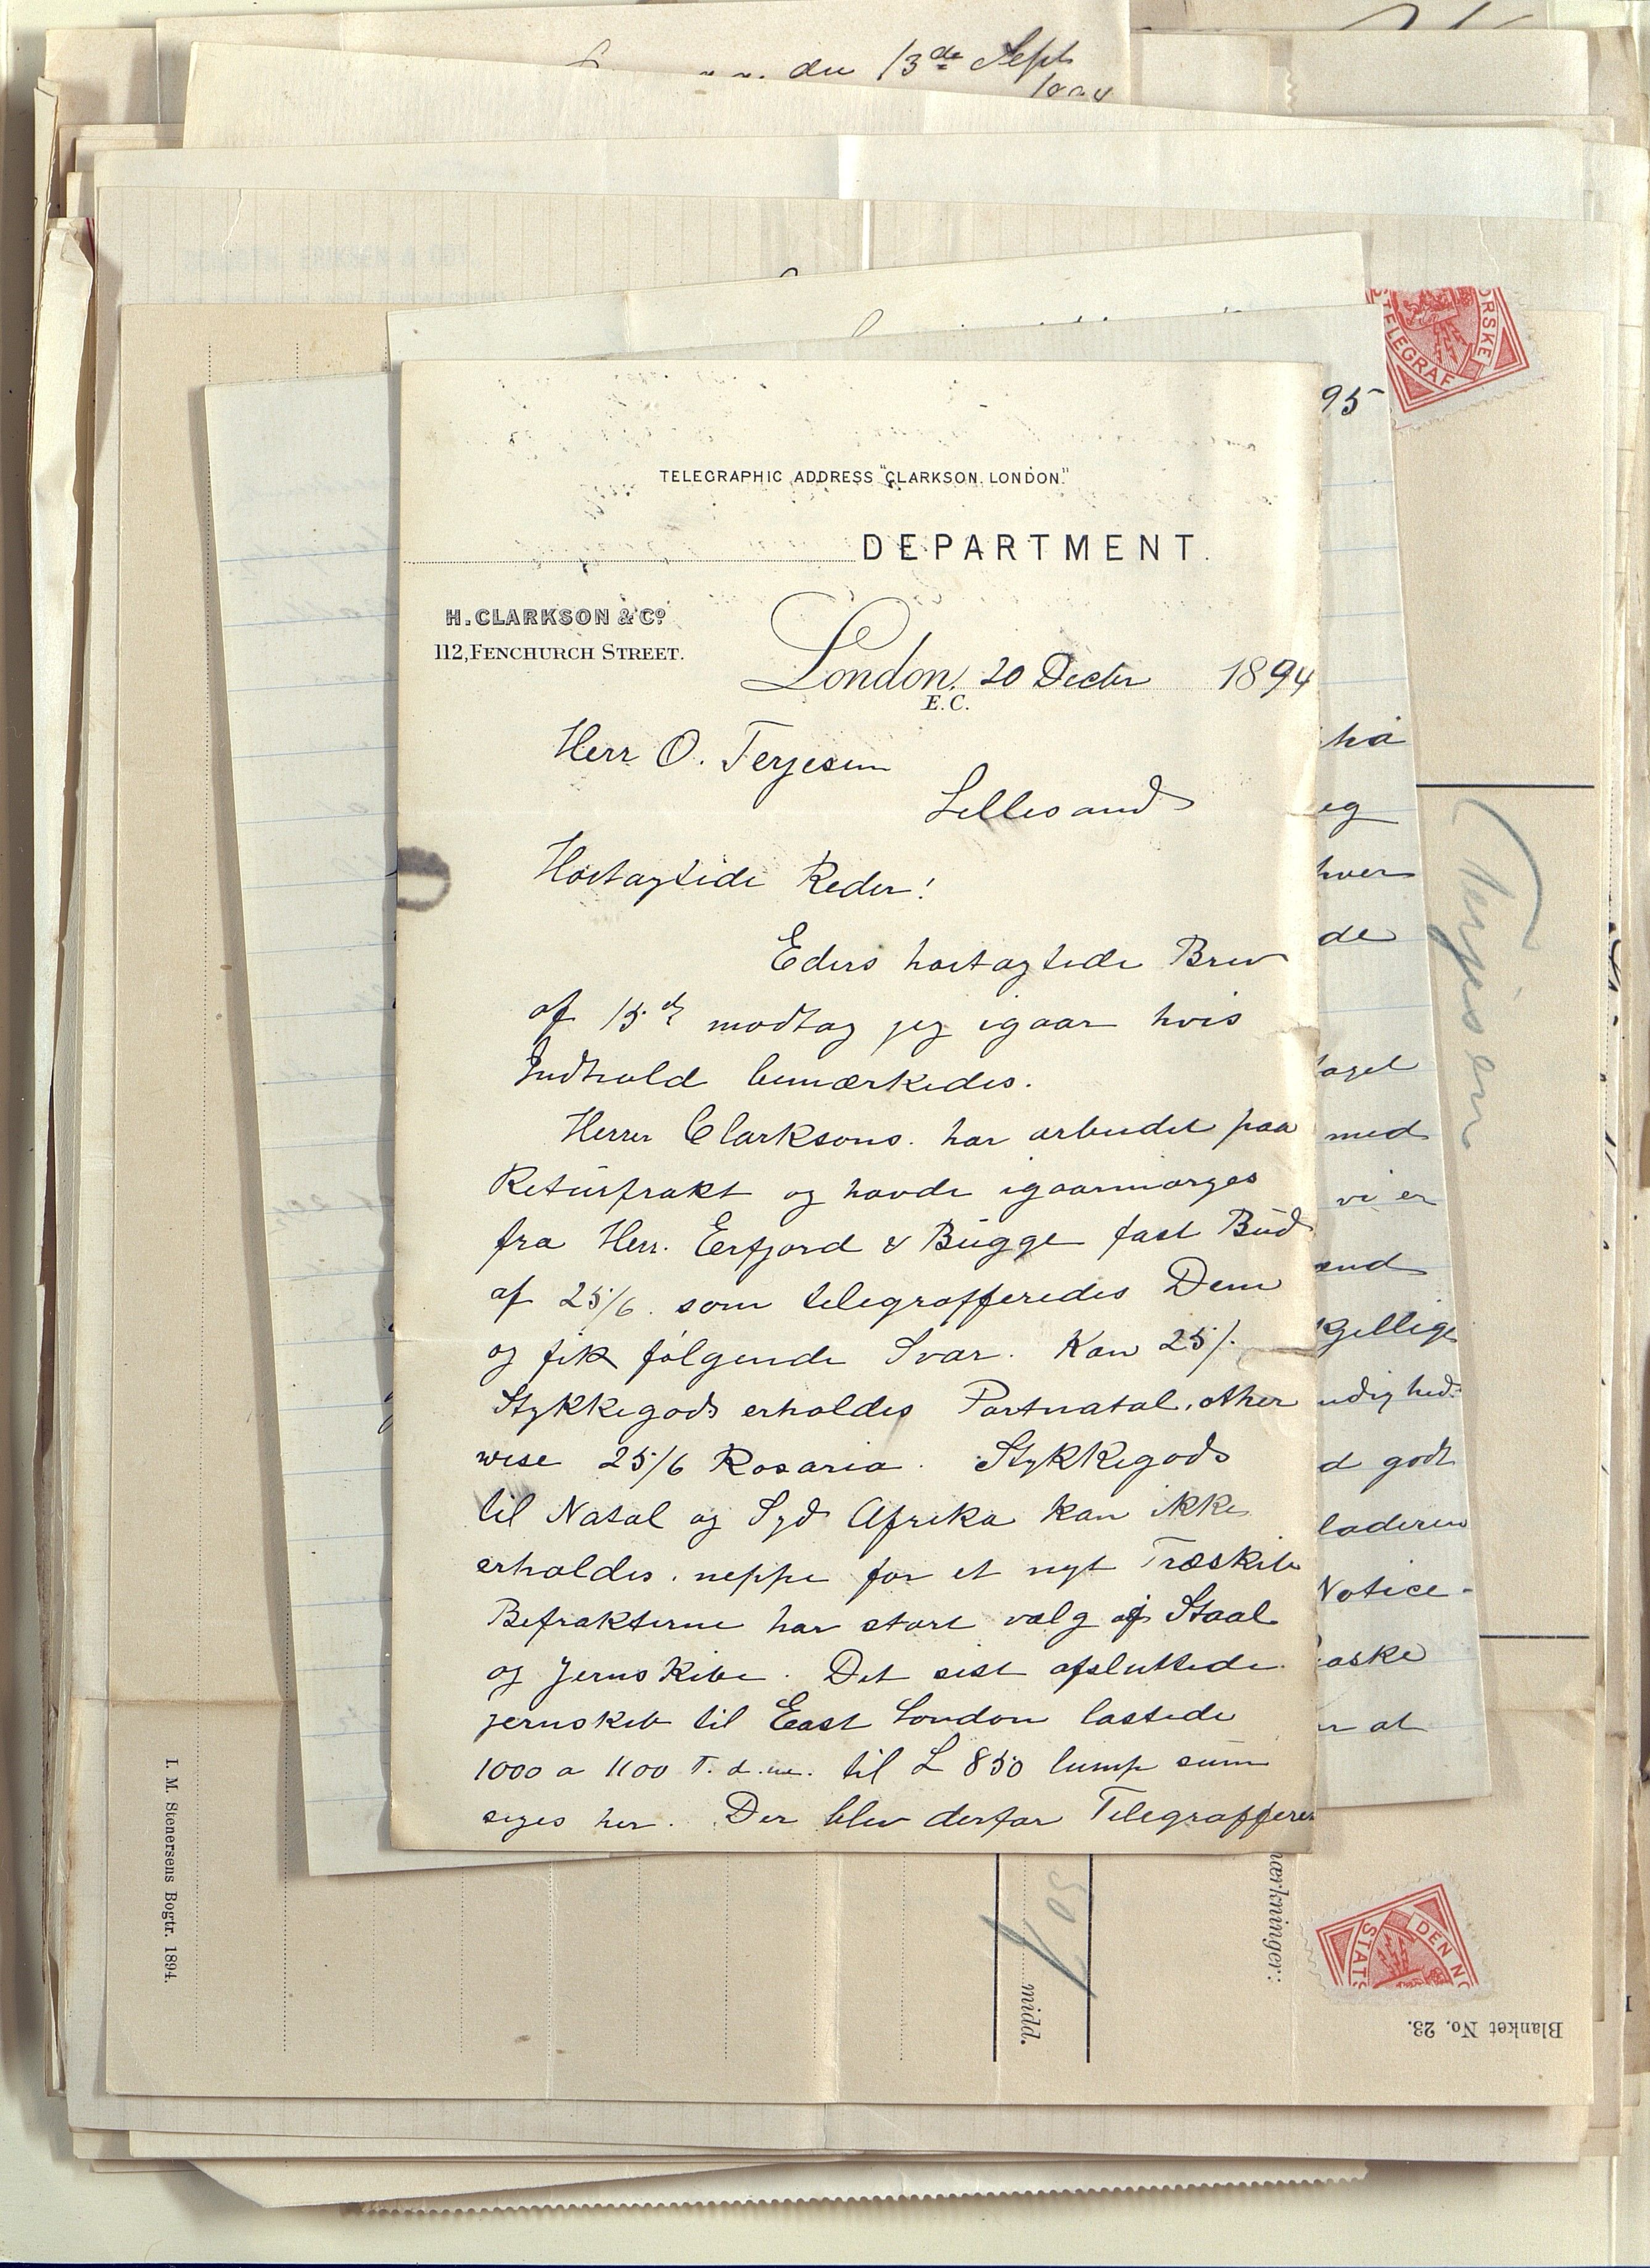 den 13de Sept
TELEGRAPHIC ADDRESS "CLARKSON. LONDON."
DEPARTMENT.
H. CLARKSON & Co
112, FENCHURCH STREET.
London, 20 Decbr 1894
E.C.
Herr O. Terjesen
Lillesand
Høitagtede Reder!
Eders høitagtede Brev
af 15de modtog jeg igaar hvis
Indhold bemærkedes.
Herrer Clarksons. har arbeidet paa
Returfrakt og havde igaarmorges
fra Herr. Eerfjord & Bugge fast Bud
af 25/6. som telegrafferedes Dem
og fik følgende Svar. Kan 25/-
Stykkegods erholdes Portnatal, other
wise 25/6 Rosario. Stykkegods
til Natal og Syd Afrika kan ikke
erholdes. neppe for et nyt Træskib
Befrakterne har stort valg af Staal
og Jernskibe. Det sist afsluttede
jernskib til East London lastede
1000 a 1100 T. d.w. til £ 850 lump sum
siges her. Der blev derfor Telegrafferet
95
hver
de
med
vi er
d godt
laderen
Notice-
aske
at
Terjesen
DEN NO
STATS
TELEGRAF
ORSKE
mærkninger:
midd.
Blanket No. 23.
I. M. Stenersens Bogtr. 1894.